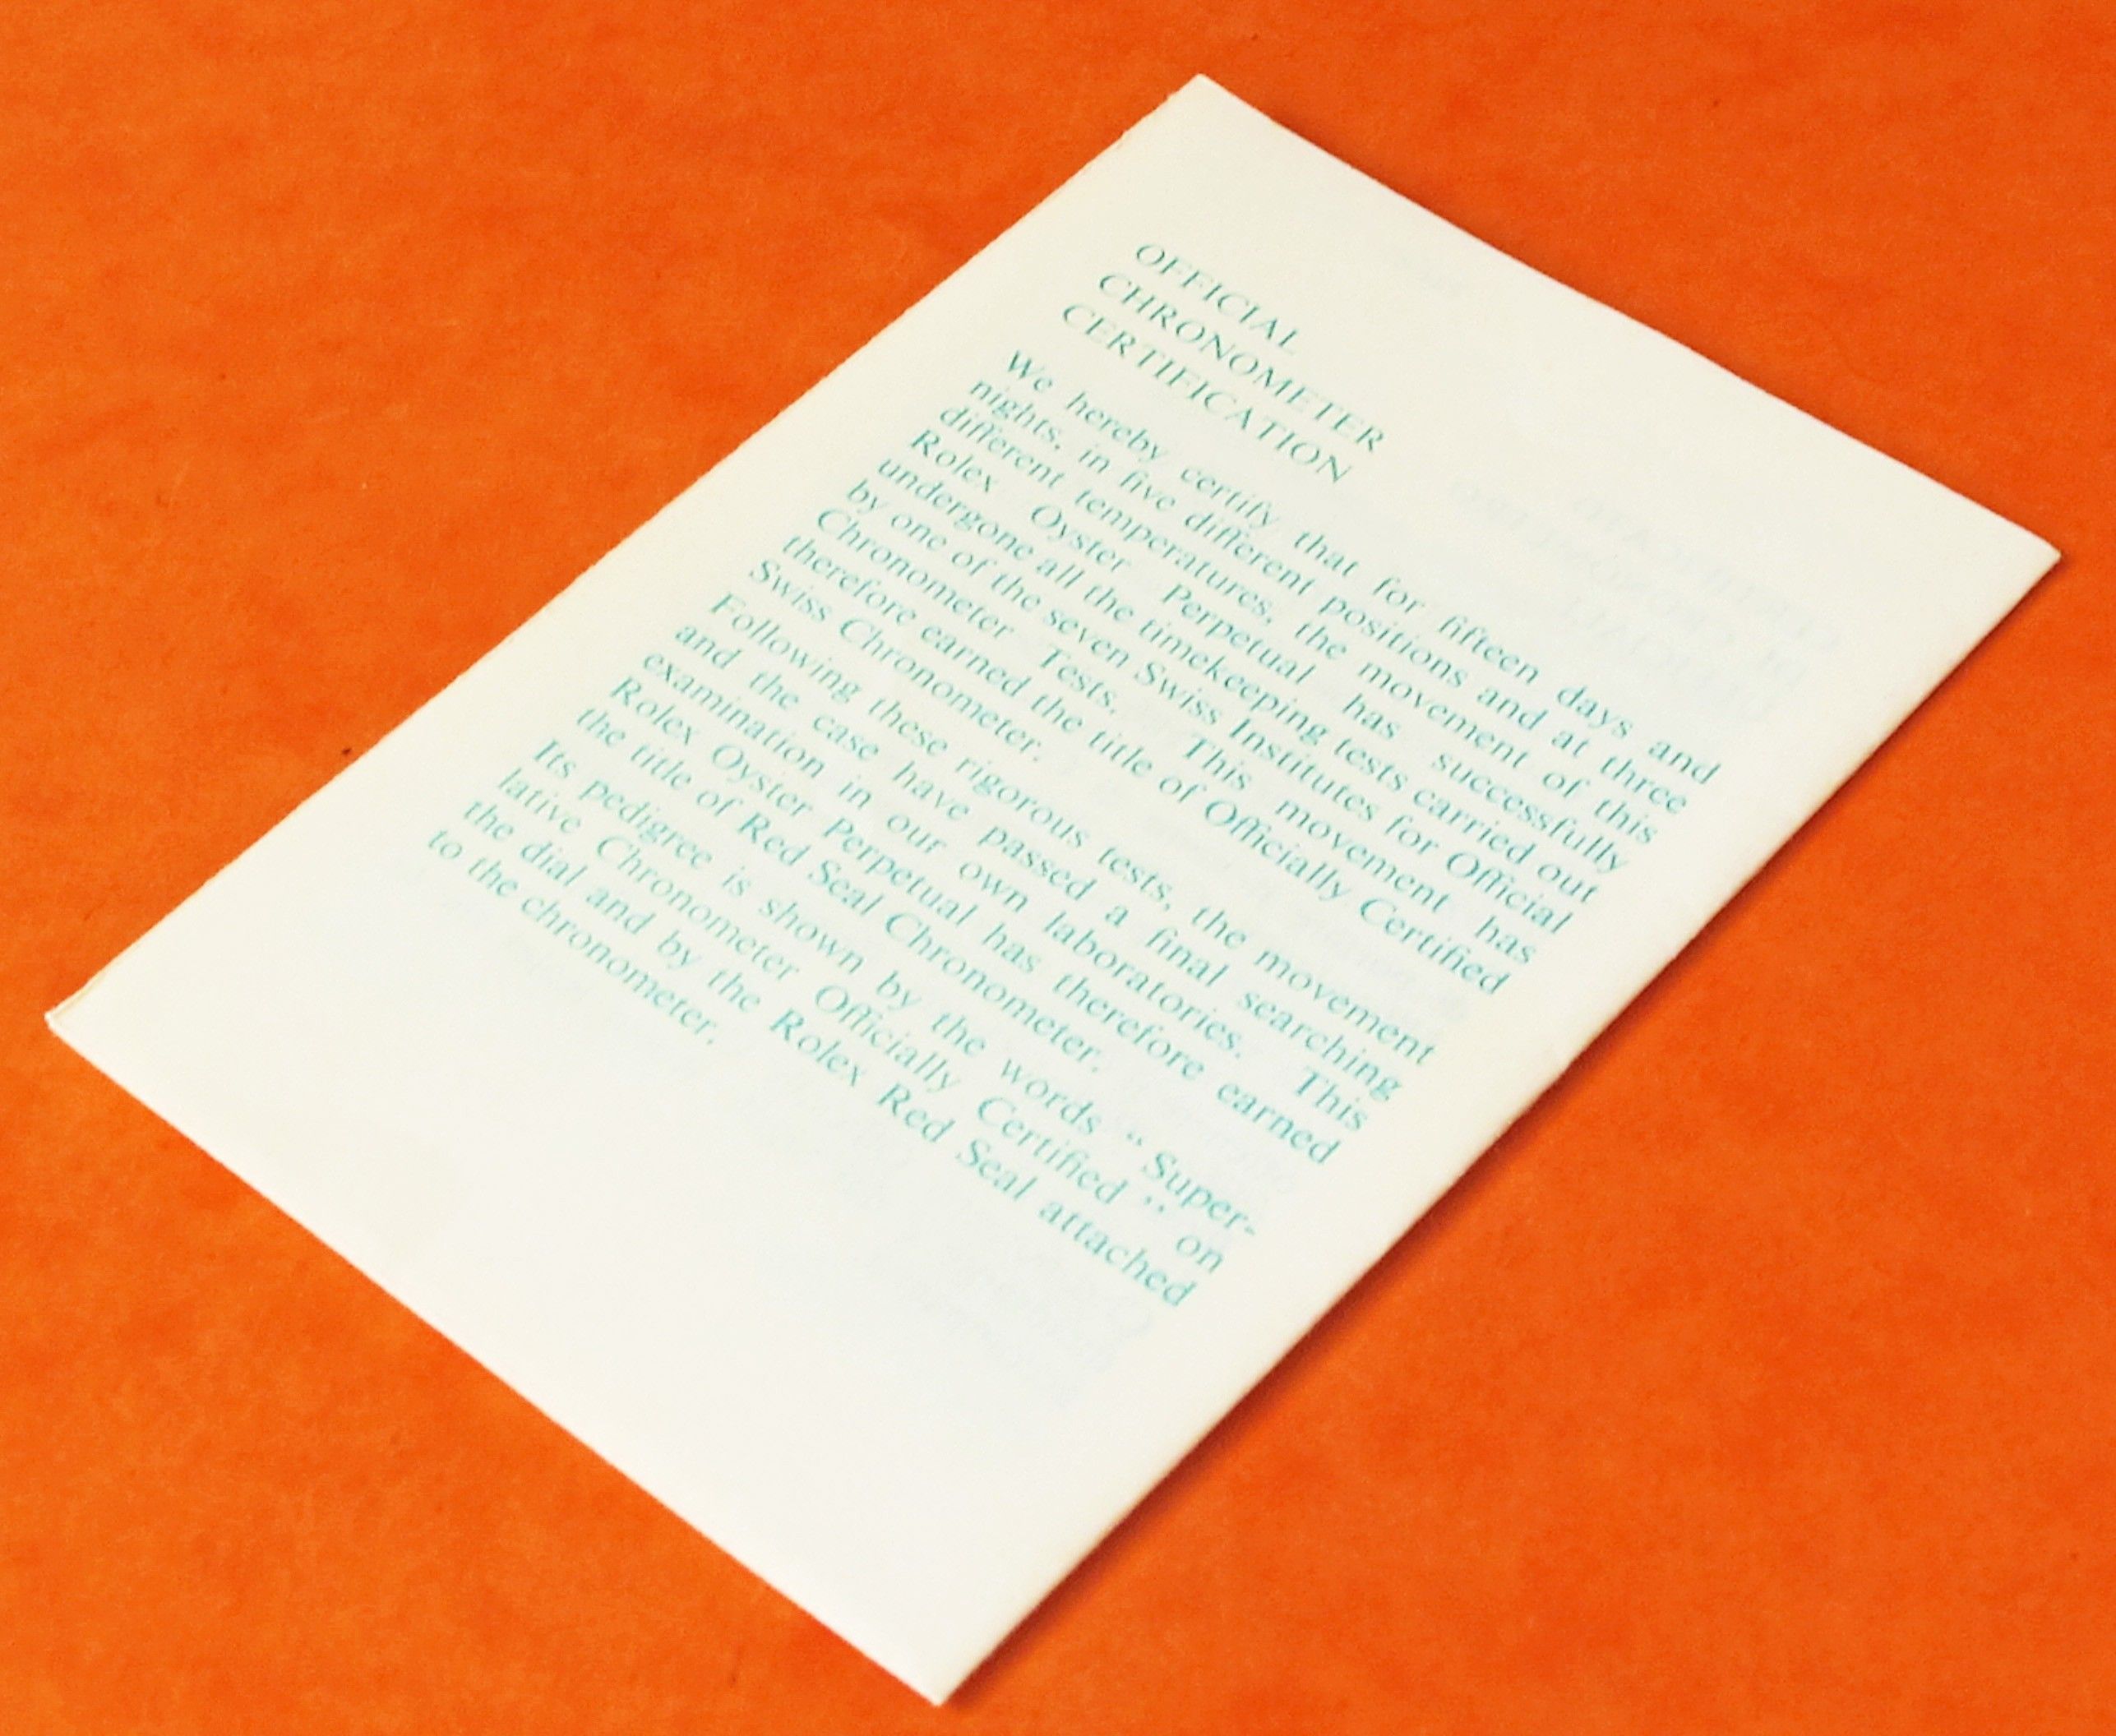 OFFICIAL
CHRONOMETER
CERTIFICATION
We hereby certify that for fifteen days and
nights, in five different positions and at three
different temperatures, the movement of this
Rolex Oyster Perpetual has successfully
undergone all the timekeeping tests carried out
by one of the seven Swiss Institutes for Official
Chronometer Tests. This movement has
therefore earned the title of Officially Certified
Swiss Chronometer.
Following these rigorous tests, the movement
and the case have passed a final searching
examination in our own laboratories. This
Rolex Oyster Perpetual has therefore earned
the title of Red Seal Chronometer.
Its pedigree is shown by the words “ Super-
lative Chronometer Officially Certified ” on
the dial and by the Rolex Red Seal attached
to the chronometer.